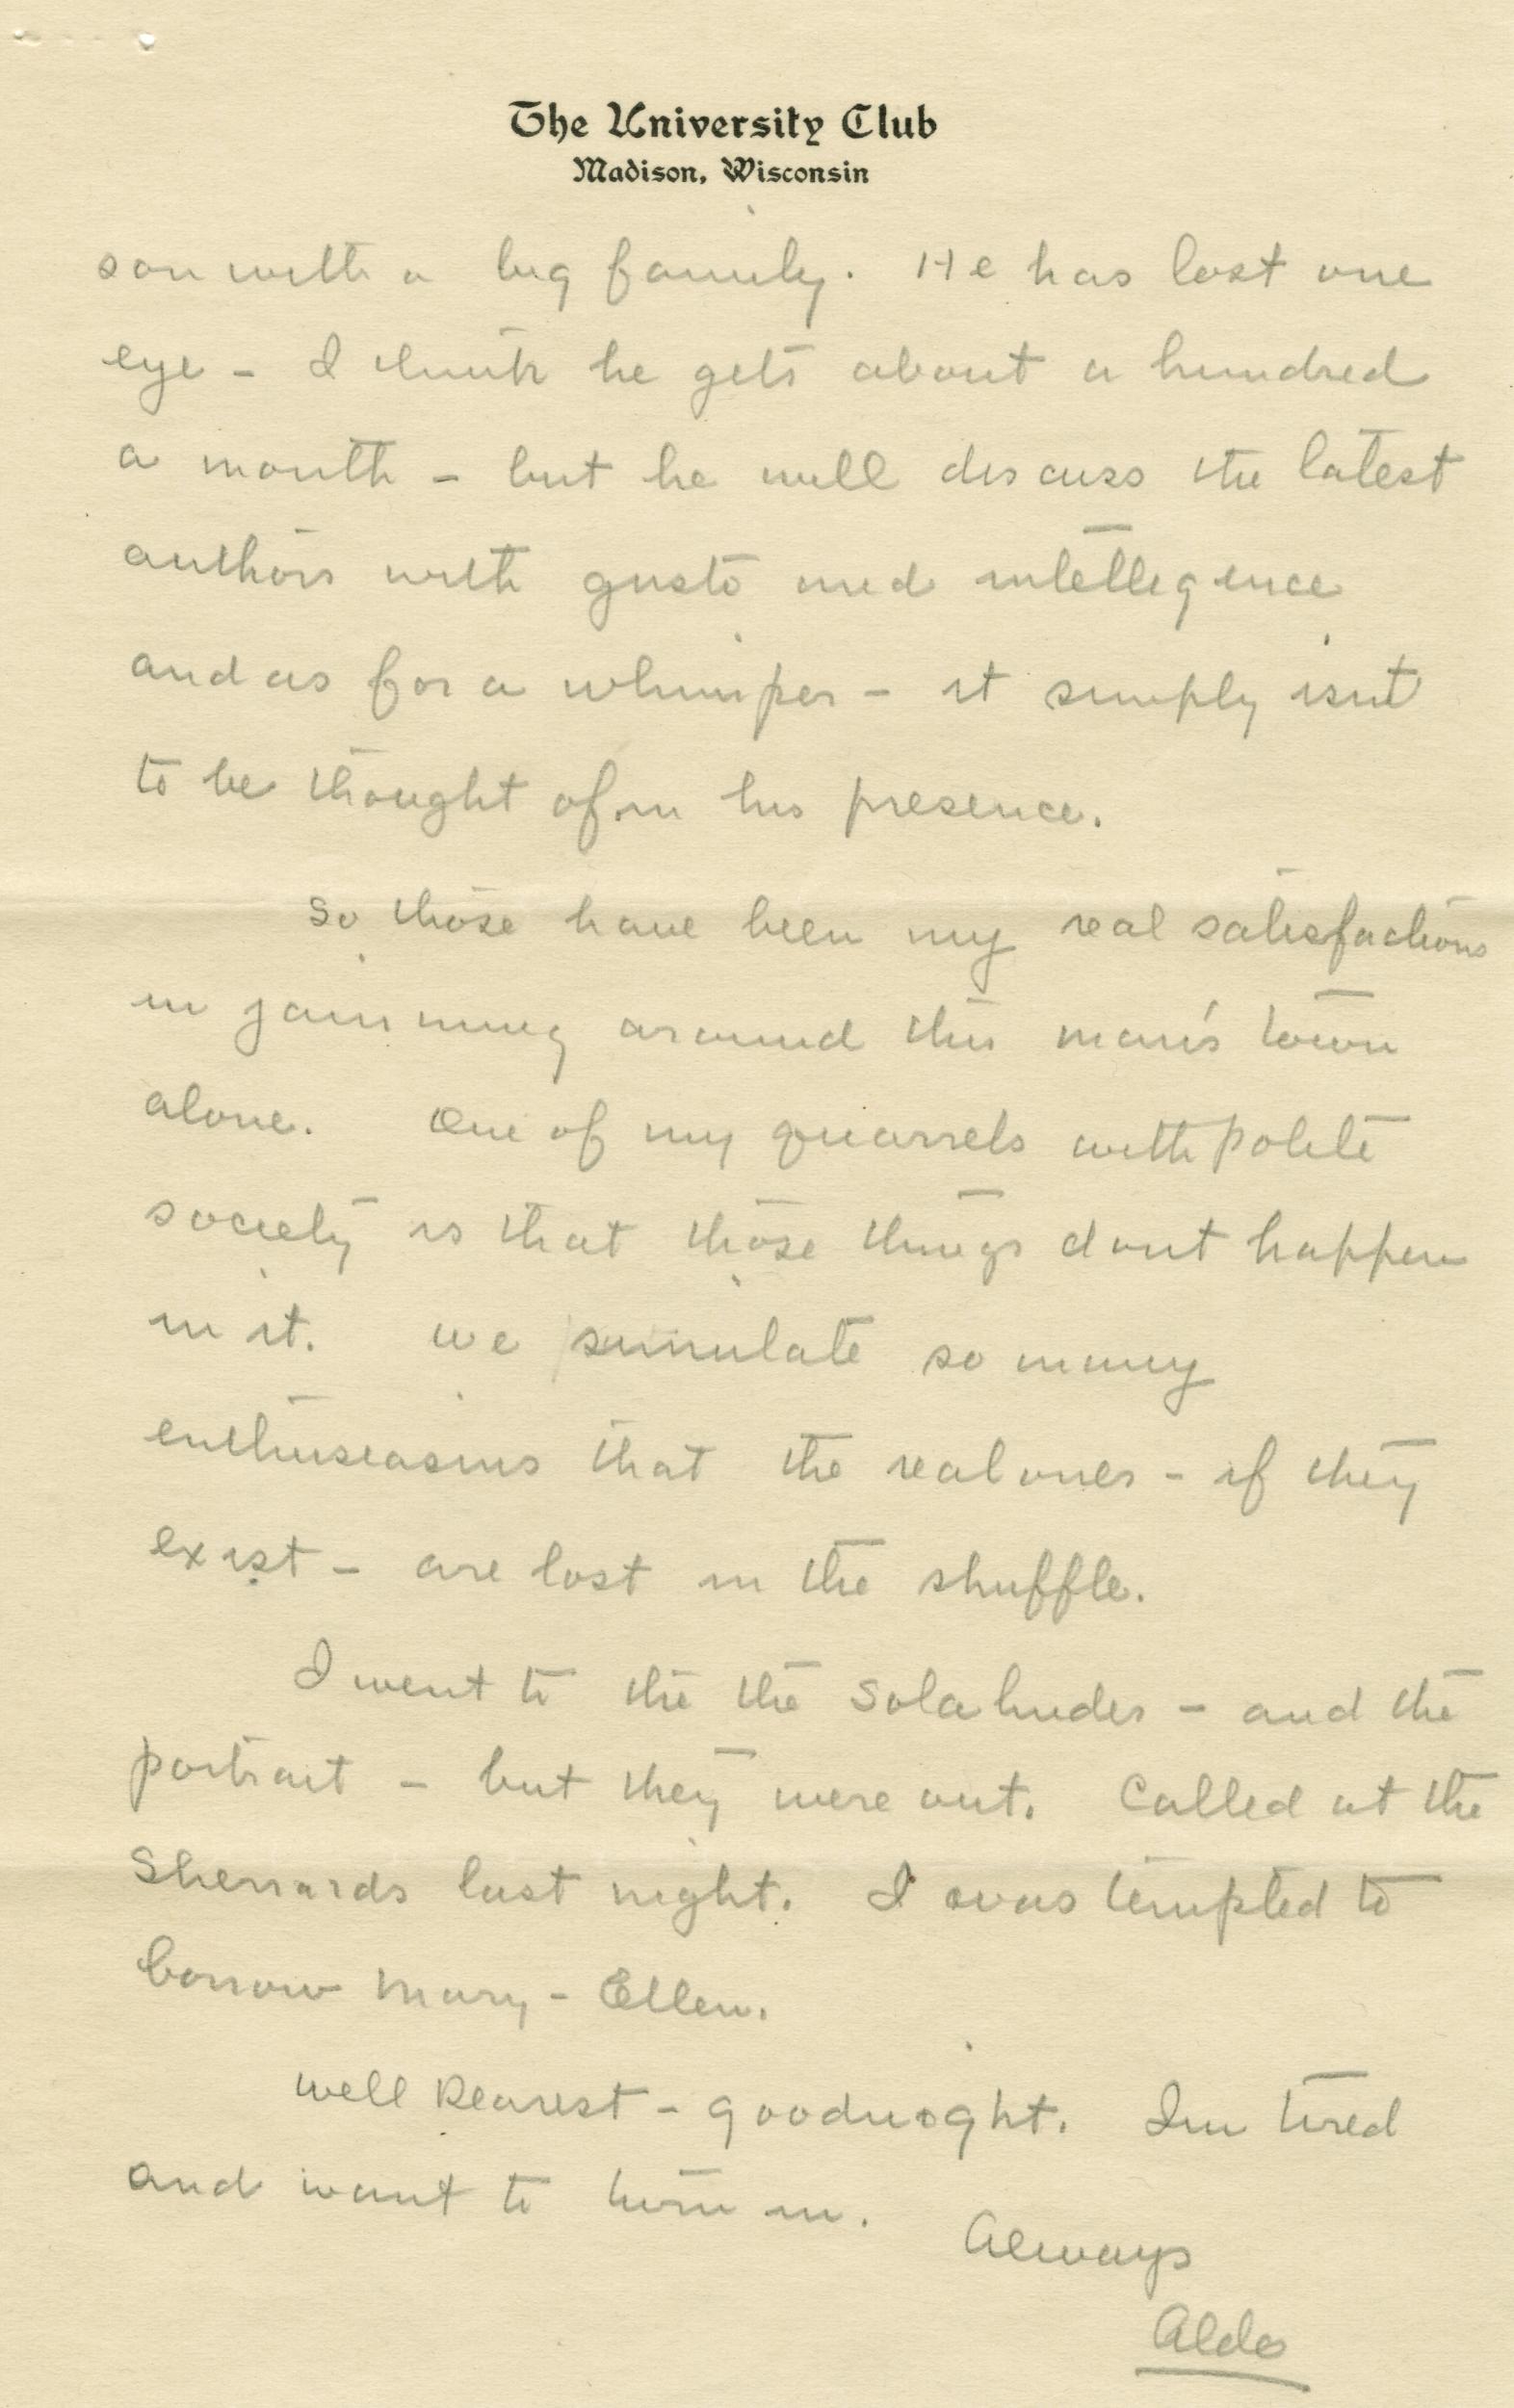 The University Club
Madison, Wisconsin
son with a big family. He has lost one
eye - I think he gets about a hundred
a month - but he will discuss the latest
authors with gusto and intellegence
and as for a whimper - it simply isnt
to be thought of in his presence.
So those have been my real satisfactions
in jamming around this man's town
alone. One of my quarrels with polite
society is that those things dont happen
in it. We simulate so many
enthusiasms that the real ones - if they
exist - are lost in the shuffle.
I went to the the - and the
portrait - but they were out. Called at the
Sherrards last night. I was tempted to
borrow Mary-Ellen.
Well Dearest - goodnight. Im tired
and want to turn in.
Always
Aldo